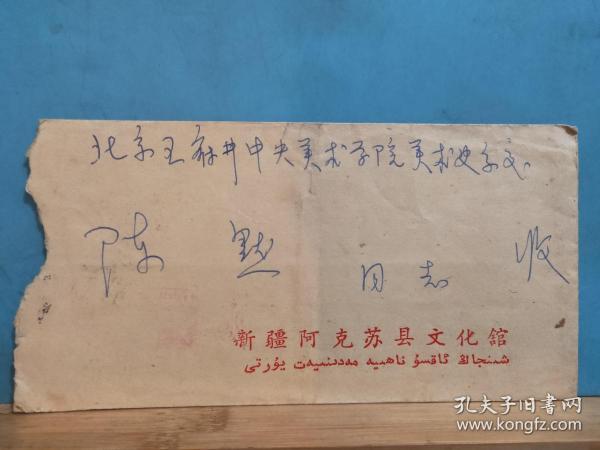 北京王府井中央美术学院美术史系交
陈默 同志 收
新疆阿克苏县文化館
شىنجاڭ ئاقسۇ ناھىيە مەدىنىيەت يۇرتى
孔夫子旧书网
www.kongfz.com